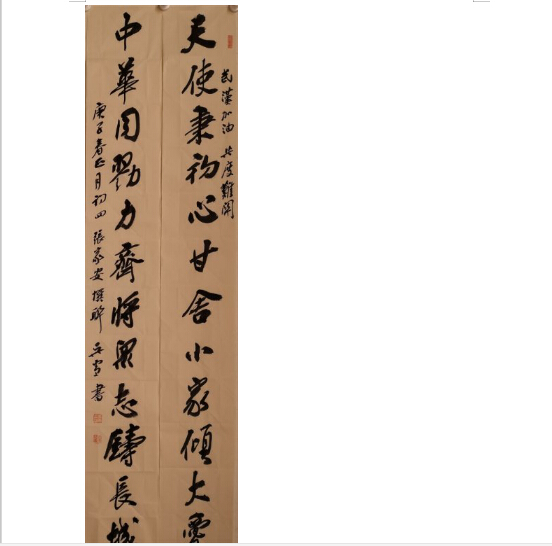 武漢加油 共度難關
天使秉初心甘舍小家傾大
中華同勠力齊將眾志鑄長城
庚子春正月初四 張家安撰聯 書